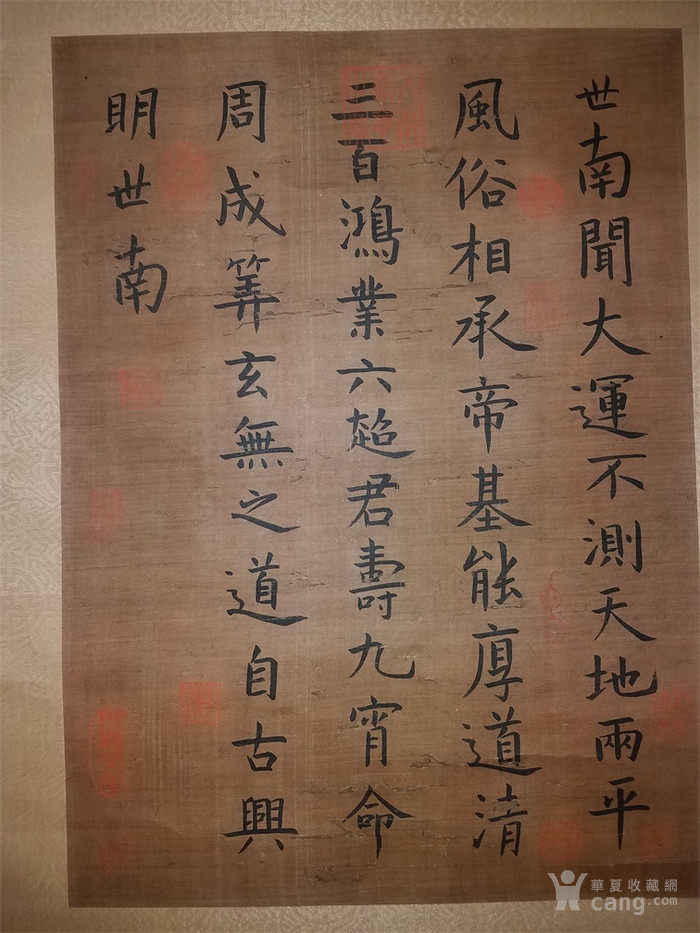 世南聞大運不測天地兩平
風俗相承帝基能厚道清
三百鴻業六超君壽九宵命
周成筭玄無之道自古興
明世南
華夏收藏網
cang.com